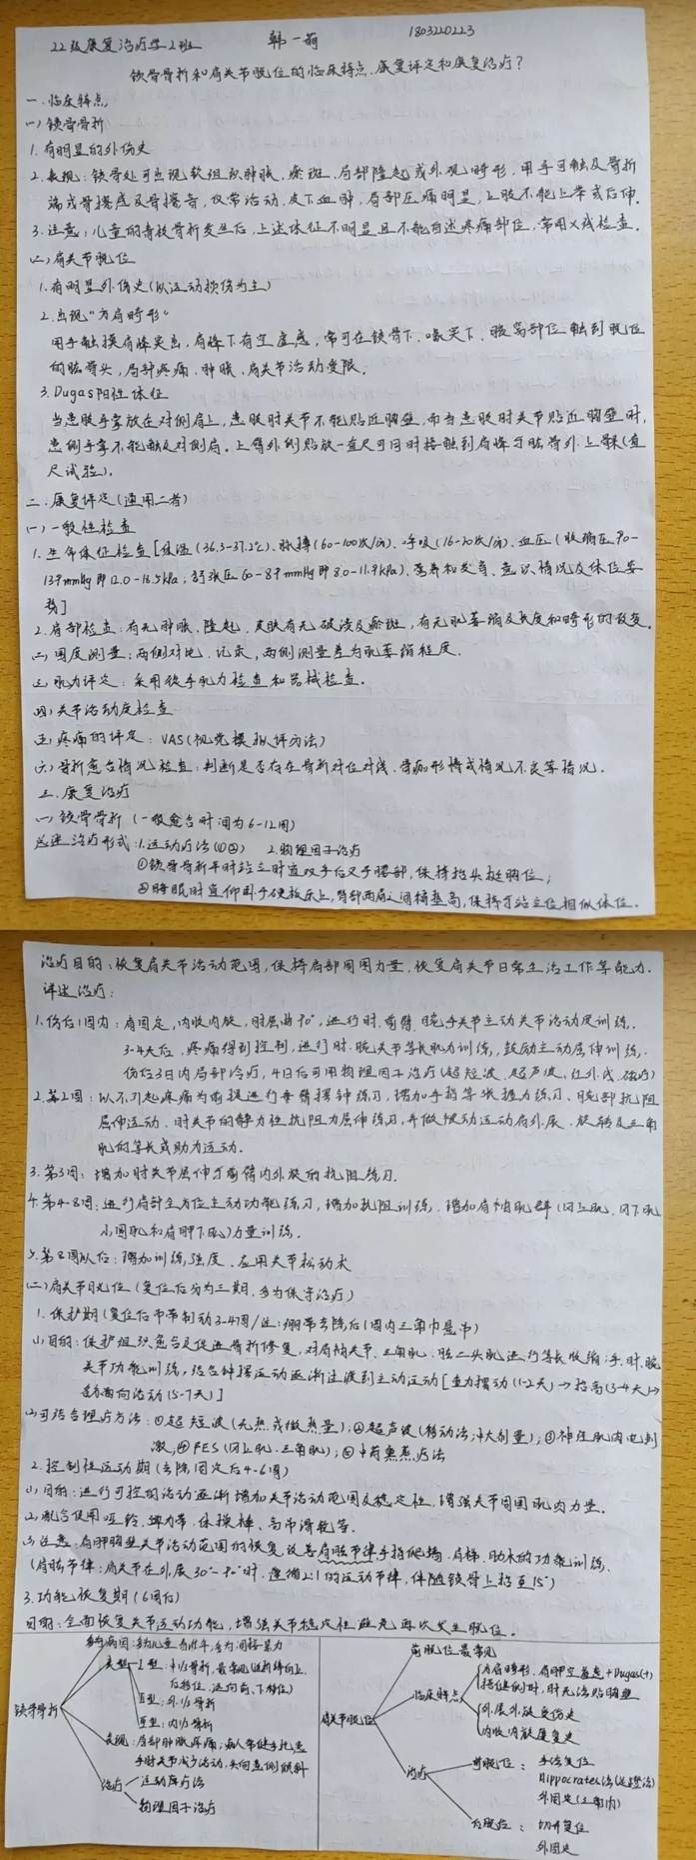 22级康复治疗学2班 韩一莉 1803220223
锁骨骨折和肩关节脱位的临床特点、康复评定和康复治疗?
一、临床特点
(一)锁骨骨折
1. 有明显的外伤史
2. 表现:锁骨处可出现软组织肿胀、瘀斑、局部隆起或外观畸形,用手可触及骨折
端或骨擦感及骨擦音,仅常活动,皮下血肿,局部压痛明显,上肢不能上举或后伸。
3. 注意:儿童的青枝骨折发生后,上述体征不明显且不能自述疼痛部位,常用X线检查。
(二)肩关节脱位
1. 有明显外伤史(以运动损伤为主)
2. 出现"方肩畸形"
用手触摸肩峰突出,肩峰下有空虚感,常可在锁骨下、喙突下、腋窝部位触到脱位
的肱骨头,局部疼痛、肿胀、肩关节活动受限。
3. Dugas阳性体征
当患肢手掌放在对侧肩上,患肢肘关节不能贴近胸壁,而当患肢肘关节贴近胸壁时,
患侧手掌不能触及对侧肩。上臂外侧贴放一直尺可同时接触到肩峰与肱骨外上髁(直
尺试验)。
二、康复评定(适用二者)
(一)一般性检查
1. 生命体征检查[体温(36.3-37.2℃)、脉搏(60-100次/分)、呼吸(16-20次/分)、血压(收缩压90-
139mmHg即12.0-18.5kPa,舒张压60-89mmHg即8.0-11.9kPa)、营养和发育、意识情况及体位姿
势]
2. 局部检查:有无肿胀、隆起,皮肤有无破溃及瘀斑,有无肌萎缩及长度和畸形的改变。
(二)围度测量:两侧对比、记录,两侧测量差为肌萎缩程度。
(三)肌力评定:采用徒手肌力检查和器械检查。
(四)关节活动度检查
(五)疼痛的评定:VAS(视觉模拟评分法)
(六)骨折愈合情况检查:判断是否存在骨折对位对线、骨痂形成情况不良等情况。
三、康复治疗
(一)锁骨骨折(一般愈合时间为6-12周)
治疗形式:1. 运动疗法(①②) 2. 物理因子治疗
①锁骨骨折平时站立时宜双手后叉于腰部,保持抬头挺胸位;
②睡眠时宜仰卧于硬板床上,背部两肩之间稍垫高,保持与站立位相似体位。
治疗目的:恢复肩关节活动范围,保持肩部周围力量,恢复肩关节日常生活工作等能力。
详述治疗:
1. 伤后1周内:肩固定,内收内旋,肘屈曲90°,进行肘、前臂、腕手关节主动关节活动度训练。
3-4天后,疼痛得到控制,进行肘、腕关节等长肌力训练,鼓励主动屈伸训练。
伤后3日内局部冷疗,4日后可用物理因子治疗(超短波、超声波、红外线、磁疗)
2. 第2周:以不引起疼痛为前提进行垂臂摆钟练习,增加手指等张握力练习、腕部抗阻
屈伸运动、肘关节的静力性抗阻力屈伸练习,并做被动运动肩外展、旋转及三角
肌的等长或助力运动。
3. 第3周:增加肘关节屈伸与前臂内外旋的抗阻练习。
4. 第4-8周:进行肩针全方位主动功能练习,增加抗阻训练,增加肩袖肌群(冈上肌、冈下肌
小圆肌和肩胛下肌)力量训练。
5. 第8周以后:增加训练强度,应用关节松动术
(二)肩关节脱位(复位后分为三期,多为保守治疗)
1. 保护期(复位后吊带制动3-4周/注:绷带去除后1周内三角巾悬吊)
(1)目的:保护组织愈合及促进骨折修复,对肩袖关节、三角肌、肱二头肌进行等长收缩;手、肘、腕
关节功能训练,结合钟摆运动逐渐过渡到主动运动[重力摆动(1-2天)→抬高(3-4天)→
各方向活动(5-7天)]
(2)可结合理疗方法:①超短波(无热或微热量);②超声波(移动法;中大剂量);③神经肌肉电刺
激;④FES(冈上肌、三角肌);⑤中药熏蒸疗法
2. 控制性运动期(去除固定后4-6周)
(1)目的:进行可控的活动逐渐增加关节活动范围及稳定性,增强关节周围肌肉力量。
(2)配合使用哑铃、弹力带、体操棒、高吊滑轮等。
(3)注意:肩胛胸壁关节活动范围的恢复,改善肩肱节律手指爬墙、肩梯、肋木的功能训练。
(肩肱节律:肩关节在外展30°-90°时,遵循2:1的运动节律,伴随锁骨上抬至15°)
3. 功能恢复期(6周后)
目的:全面恢复关节运动功能,增强关节稳定性避免再次发生脱位。
锁骨骨折
类型 Ⅰ型:中1/3骨折,最常见(近折端向上、
后移位,远向前、下移位)
Ⅱ型:外1/3骨折
Ⅲ型:内1/3骨折
表现:局部肿胀疼痛;病人常健手托患
手肘关节减少活动,头向患侧倾斜
治疗 运动疗法
物理因子治疗
肩关节脱位
前脱位最常见
临床特点 方肩畸形,肩胛空虚感+Dugas(+)
搭健侧时,肘无法贴胸壁
外展外旋受伤史
治疗 前脱位: 手法复位
Hippocrates法(足蹬法)
外固定(三角巾)
后脱位: 切开复位
外固定